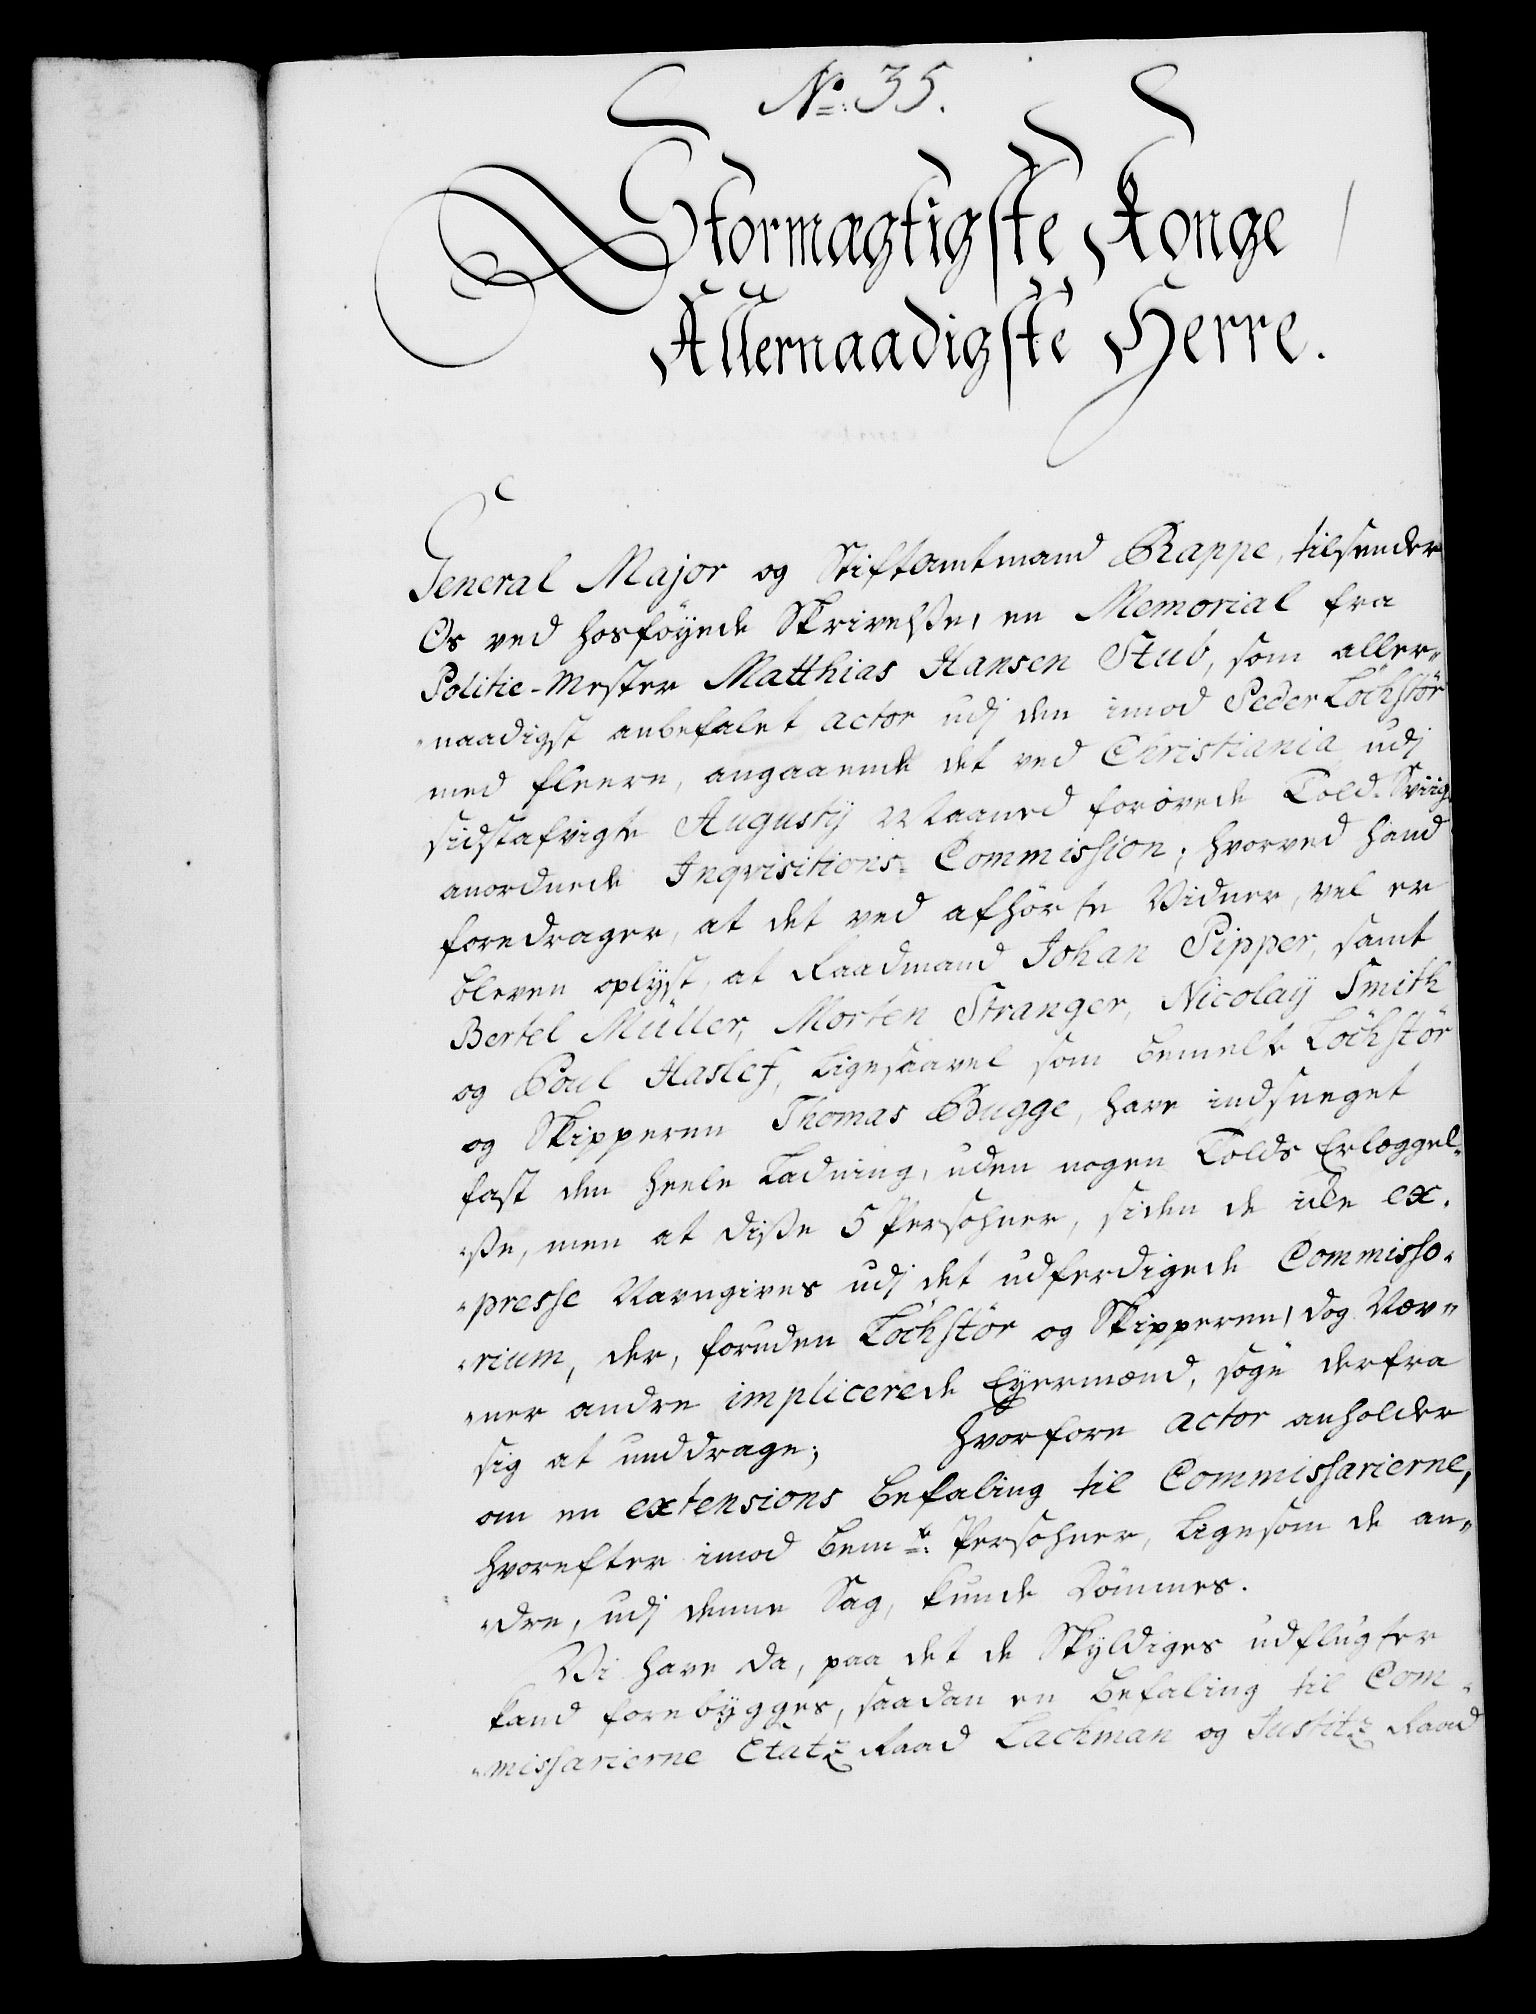 No: 35.
Stormægtigste Konge
Allernaadigste Herre.
General Major og Stiftamtmand Rappe, tilsender
Os ved hosföyede Skrivelse, en Memorial fra
Politie-Mester Matthias Hansen Stub, som aller„
„naadigst anbefalet actor udj den imod Peder Löchstör
med fleere, angaaende det ved Christiania udj
sidstafvigte Augustij Maaned forövede Told-Sviig
anordnede Inqvisitions-Commission; hvorved hand
foredrager, at det ved afhörte Vidner, vel er
bleven oplyst, at Raadmand Johan Pipper, samt
Bertel Müller, Morten Stranger, Nicolaij Smith
og Poul Haslef, ligesaavel som bemelte Löchstör
og Skipperen Thomas Bugge, have indsneget
fast den heele Ladning, uden nogen Tolds Erlæggel„
„se, men at disse 5 Persohner, siden de icke ex„
„presse Navngives udj det udferdigede Commisso„
„rium, der, foruden Löchstör og Skipperen, dog Næv„
„ner andre implicerede Eyermænd, söge derfra
sig at unddrage; Hvorfore actor anholder
om en extensions Befaling til Commissarierne,
hvorefter imod bemte: Persohner, ligesom de an„
„dre, udj denne Sag, kunde Dömmes.
Vi have da, paa det de Skyldiges udflugter
kand forebygges, saadan en Befaling til Com„
„missarierne Etatz Raad Lachman og Justitz Raad